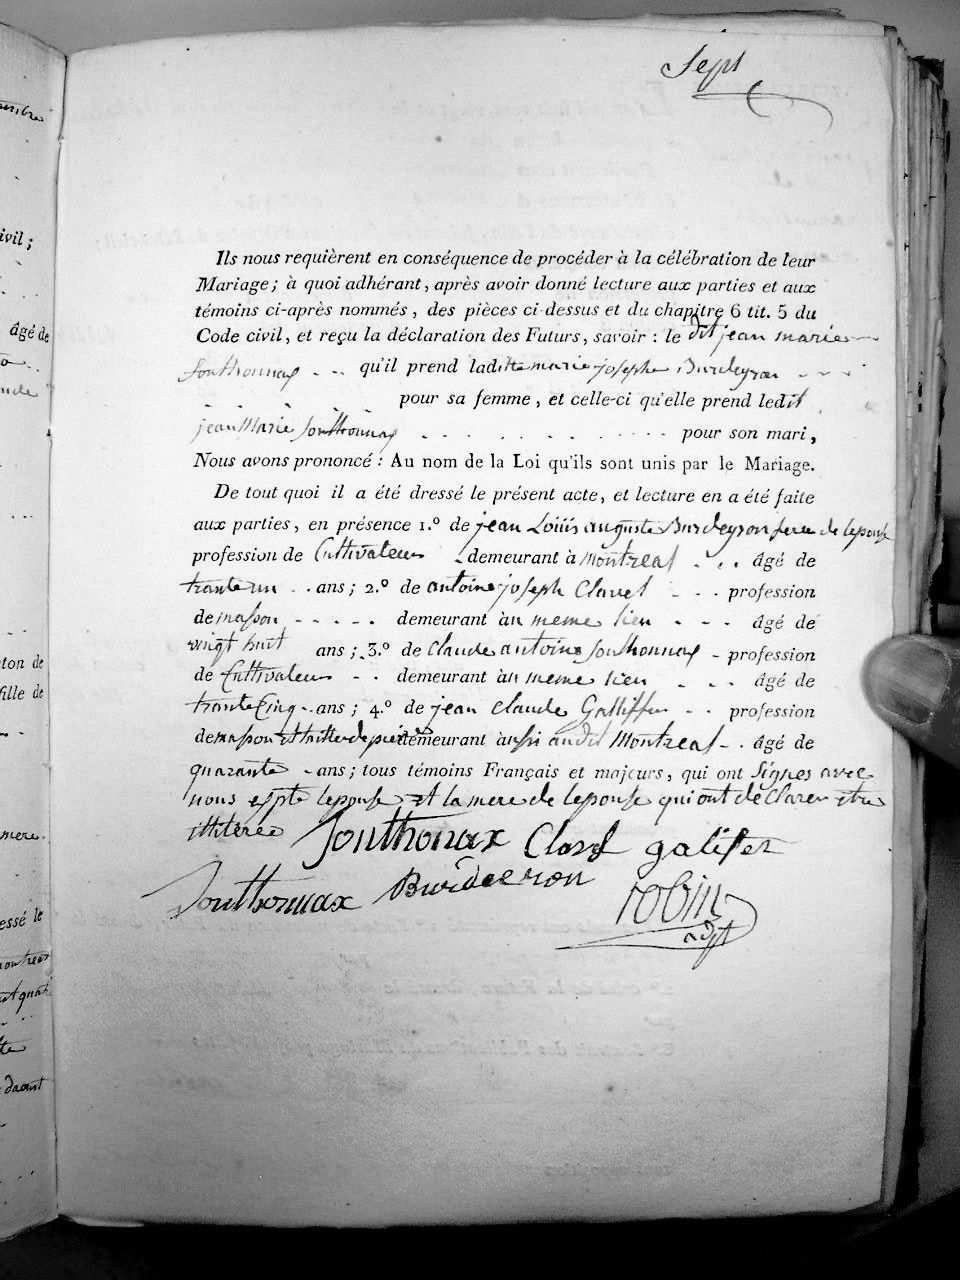 Sept
Ils nous requièrent en conséquence de procéder à la célébration de leur
Mariage; à quoi adhérant, après avoir donné lecture aux parties et aux
témoins ci-après nommés, des pièces ci-dessus et du chapitre 6 tit. 5 du
Code civil, et reçu la déclaration des Futurs, savoir : le dit jean marie
Sonthonnax - - qu'il prend laditte marie josephe Burdeyron - - - -
pour sa femme, et celle-ci qu'elle prend ledit
jean Marie Sonthonnax - . . . . . . . . . . pour son mari,
Nous avons prononcé : Au nom de la Loi qu'ils sont unis par le Mariage.
De tout quoi il a été dressé le présent acte, et lecture en a été faite
aux parties, en présence 1.º de jean Louis auguste Burdeyron frere de lepouse
profession de Cultivateur - demeurant à Montreal - . . âgé de
trante un . . ans; 2.º de antoine joseph Clavel - - - profession
de masson - - - - - demeurant àu meme lieu - - - âgé de
vingt huit ans; 3.º de Claude antoine Sonthonnax - profession
de Cultivateur - - demeurant àu meme lieu - - - âgé de
trante Cinq - . ans; 4.º de jean claude Galliffer - - profession
de masson et taille de pierre demeurant àussi audit Montreal - . âgé de
quarante - ans; tous témoins Français et majeurs, qui ont Signes avec
nous expte lepouse et la mere de lepouse qui ont declarer etre
illiteree
Sonthonax Clavel galifer
Sonthonnax Burdeeron robin
adjt
ivil;
âgé de
ton de
fille de
mere
essé le